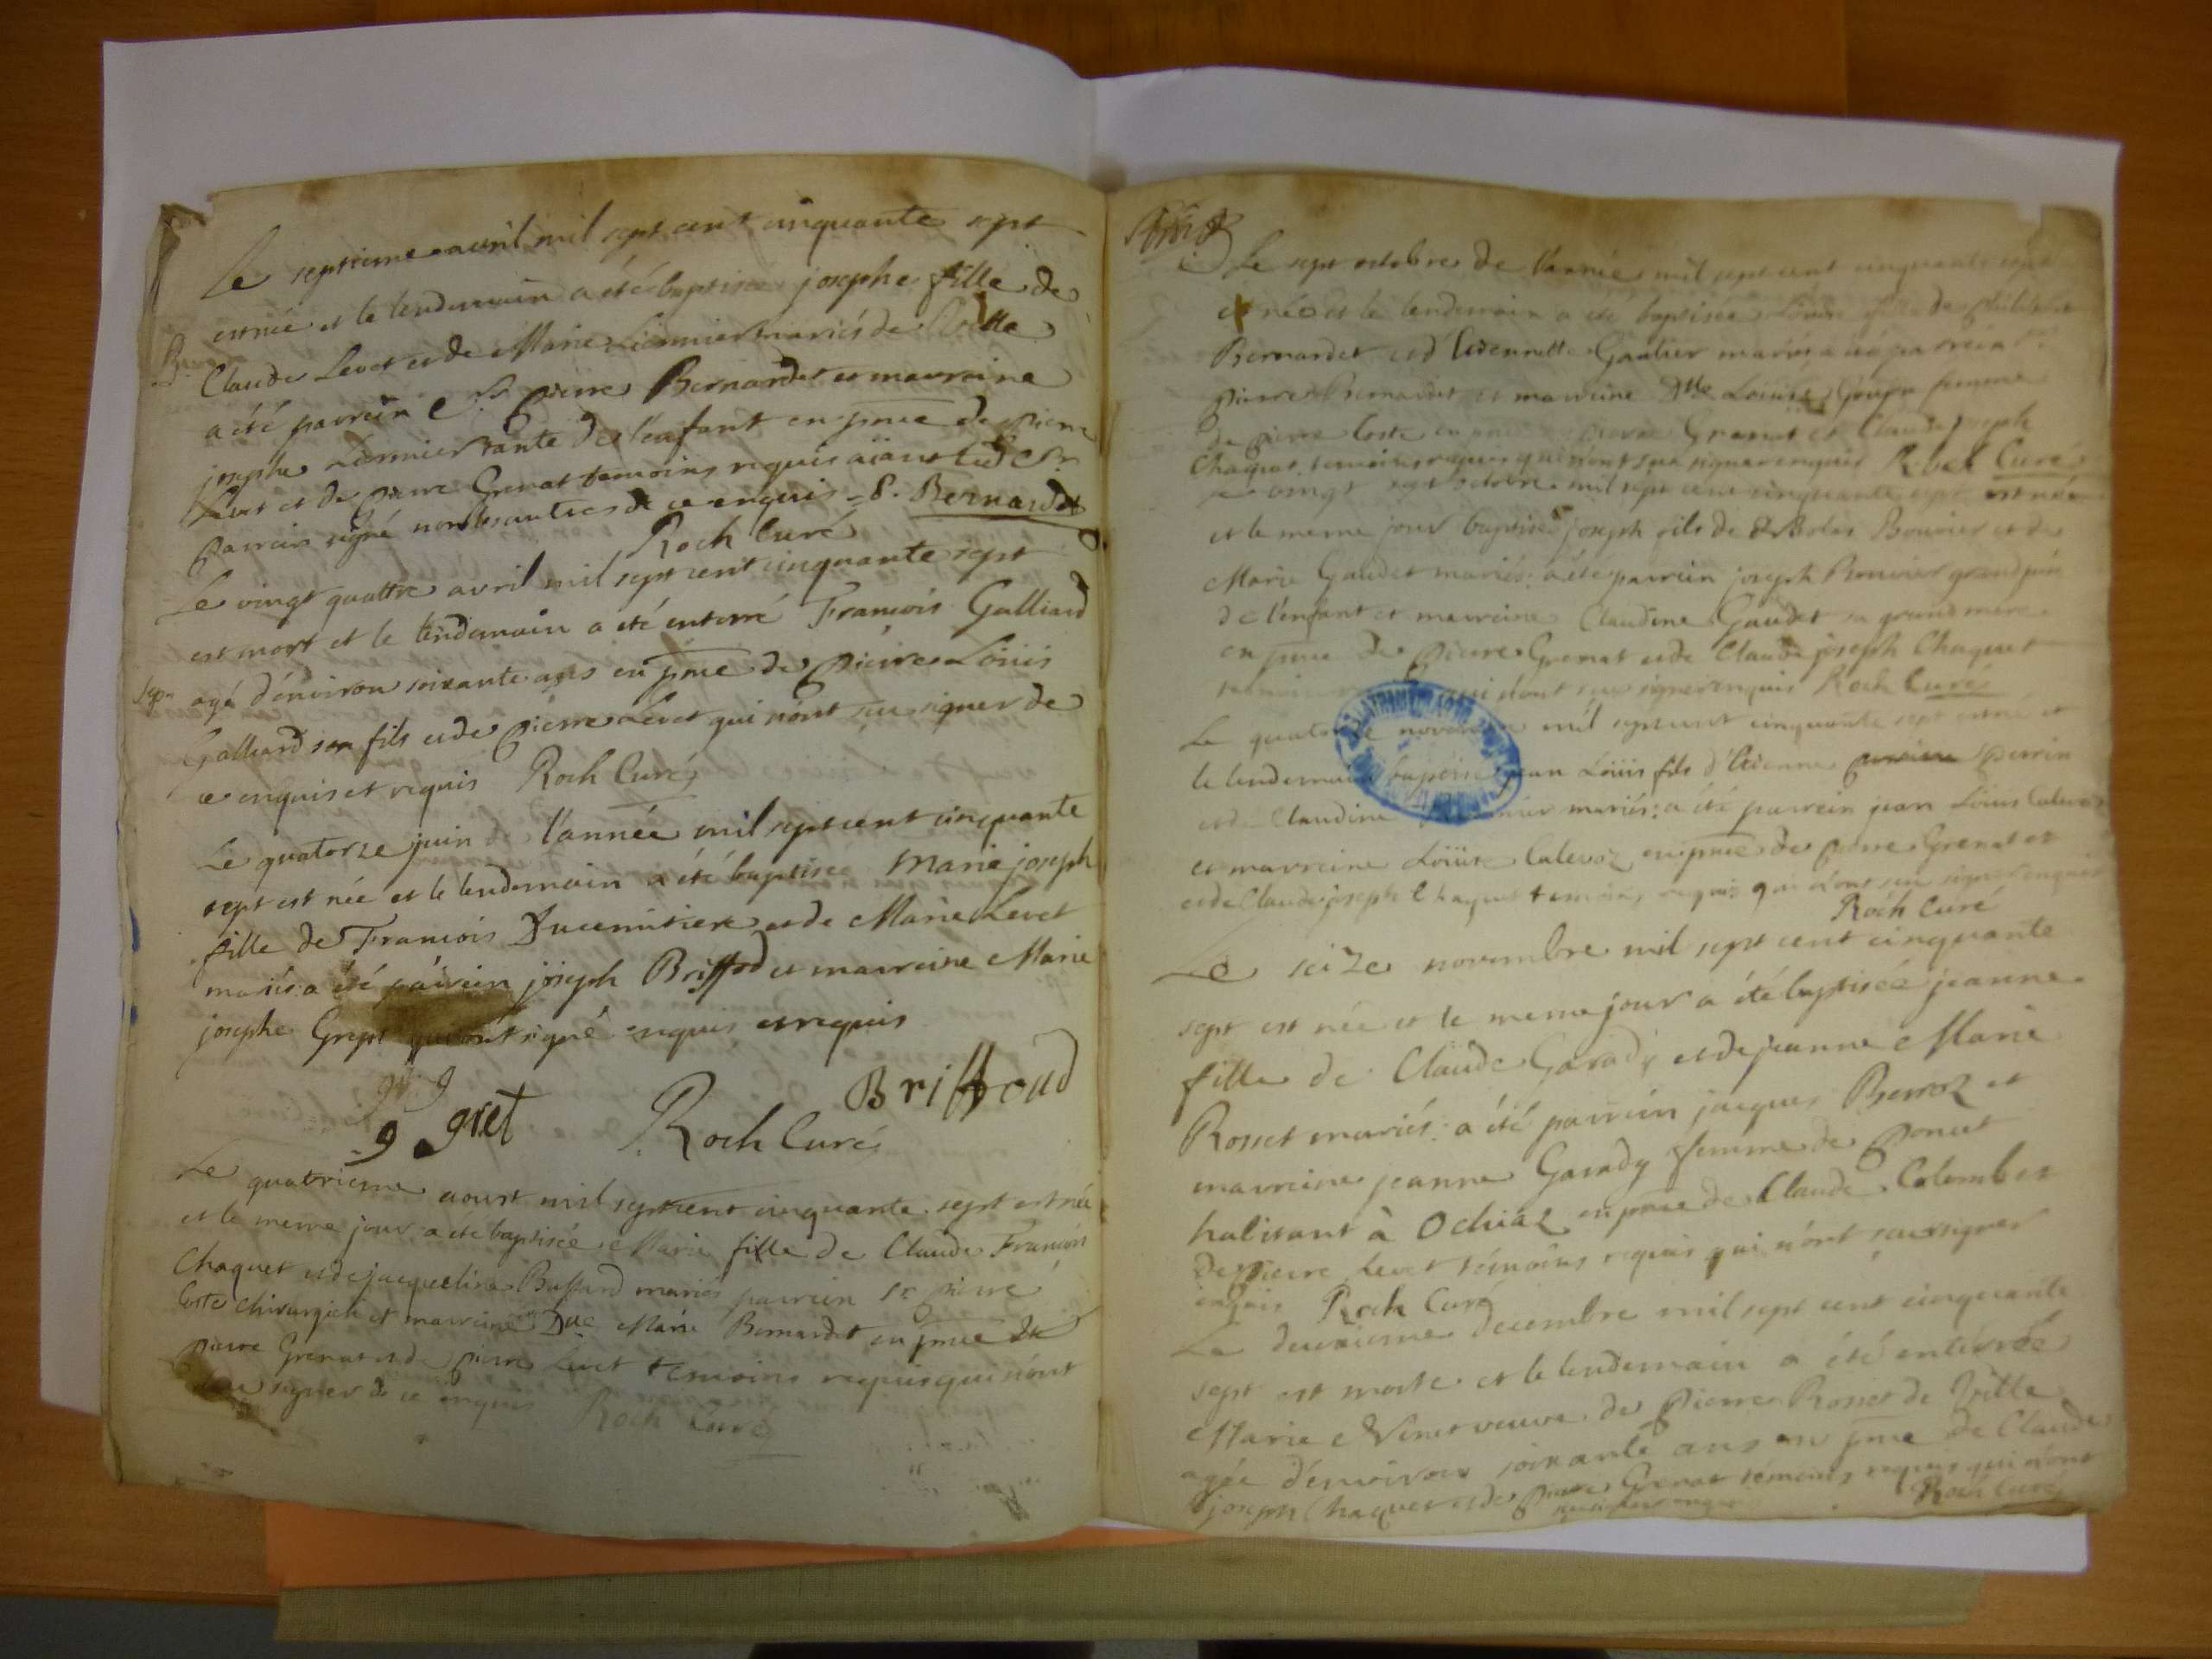 Le septieme avril mil sept cent cinquante sept
est née et le lendemain a été baptisée josephe fille de
B.
Claude Levet et de Marie Lionnier mariés de Ville
a été parrein Sr. pierre Bernardet et mavraine
josephe Lionnier tante de l'enfant en pnce de pierre
Levet et de pierre Grenat temoins requis aiant led Sr.
parrein signé non les autres de ce enquis P. Bernardet
Roch Curé
Le vingt quattre avril mil sept cent cinquante sept
est mort et le lendemain a été enterré François Galliard
Sep.
agé d'environ soixante ans en pnce de pierre Loüis
Galliard son fils et de pierre Levet qui n'ont sçu signer de
ce enquis et requis Roch Curé
Le quatorze juin de l'année mil sept cent cinquante
sept est née et le lendemain a été baptisée Marie joseph
fille de François Ducemitiere et de Marie Levet
mariés a été parrein joseph Briffod et mavreine Marie
josephe Gret qui ont signé enquis et requis
g gret Roch Curé Briffoud
Le quatrieme aoust mil sept cent cinquante sept est née
et le meme jour a eté baptisée Marie fille de Claude François
Chaquet et de jacqueline Buffard mariés parrein Sr pierre
Coste chirurgien et mavreine Dlle Marie Bernardet en pnce de
pierre Grenat et de pierre Levet temoins requis qui n'ont
sçu signer de ce enquis Roch Curé
Le sept octobre de l'année mil sept cent cinquante sept
est née et le lendemain a été baptisée Loüise fille de philibert
Bernardet et d'Etiennette Gautier mariés a été parrein Sr.
pierre Bernardet et mavreine Dlle Loüise femme
de pierre Coste en pnce de pierre Grenat et Claude joseph
Chaquet temoins requis qui n'ont sçu signer enquis Roch Curé
Le vingt sept octobre mil sept cent cinquante sept est née
et le meme jour baptisé joseph fils de Nicolas Bouvier et de
Marie Gaudet mariés: a été parrein joseph Bouvier grand père
de l'enfant et mavreine Claudine Gaudet sa grand mere
en pnce de pierre Grenat et de Claude joseph Chaquet
temoins requis qui n'ont sçu signer enquis Roch Curé
Le quatorze novembre mil sept cent cinquante sept est né et
le lendemain baptisé jean Loüis fils d'Etienne Perrin
et de Claudine mariés: a été parrein jean Loüis Calevoz
et mavreine Loüise Calevoz en pnce de pierre Grenat et
et de Claude joseph Chaquet temoins requis qui n'ont sçu signer enquis
Roch Curé
Le seize novembre mil sept cent cinquante
sept est née et le meme jour a été baptisée jeanne
fille de Claude Gavady et de jeanne Marie
Rosset mariés: a été parrein jacques Berroz et
mavreine jeanne Gavady femme de Poncet
habitant à Ochiaz en pnce de Claude Colombet
de pierre Levet témoins requis qui n'ont sçu signer
enquis Roch Curé
Le deuxieme decembre mil sept cent cinquante
sept est morte et le lendemain a été enterrée
Marie veuve de pierre Rosset de Ville
agée d'environ soixante ans en pnce de Claude
joseph Chaquet et de pierre Grenat témoins requis qui n'ont
sçu signer enquis Roch Curé